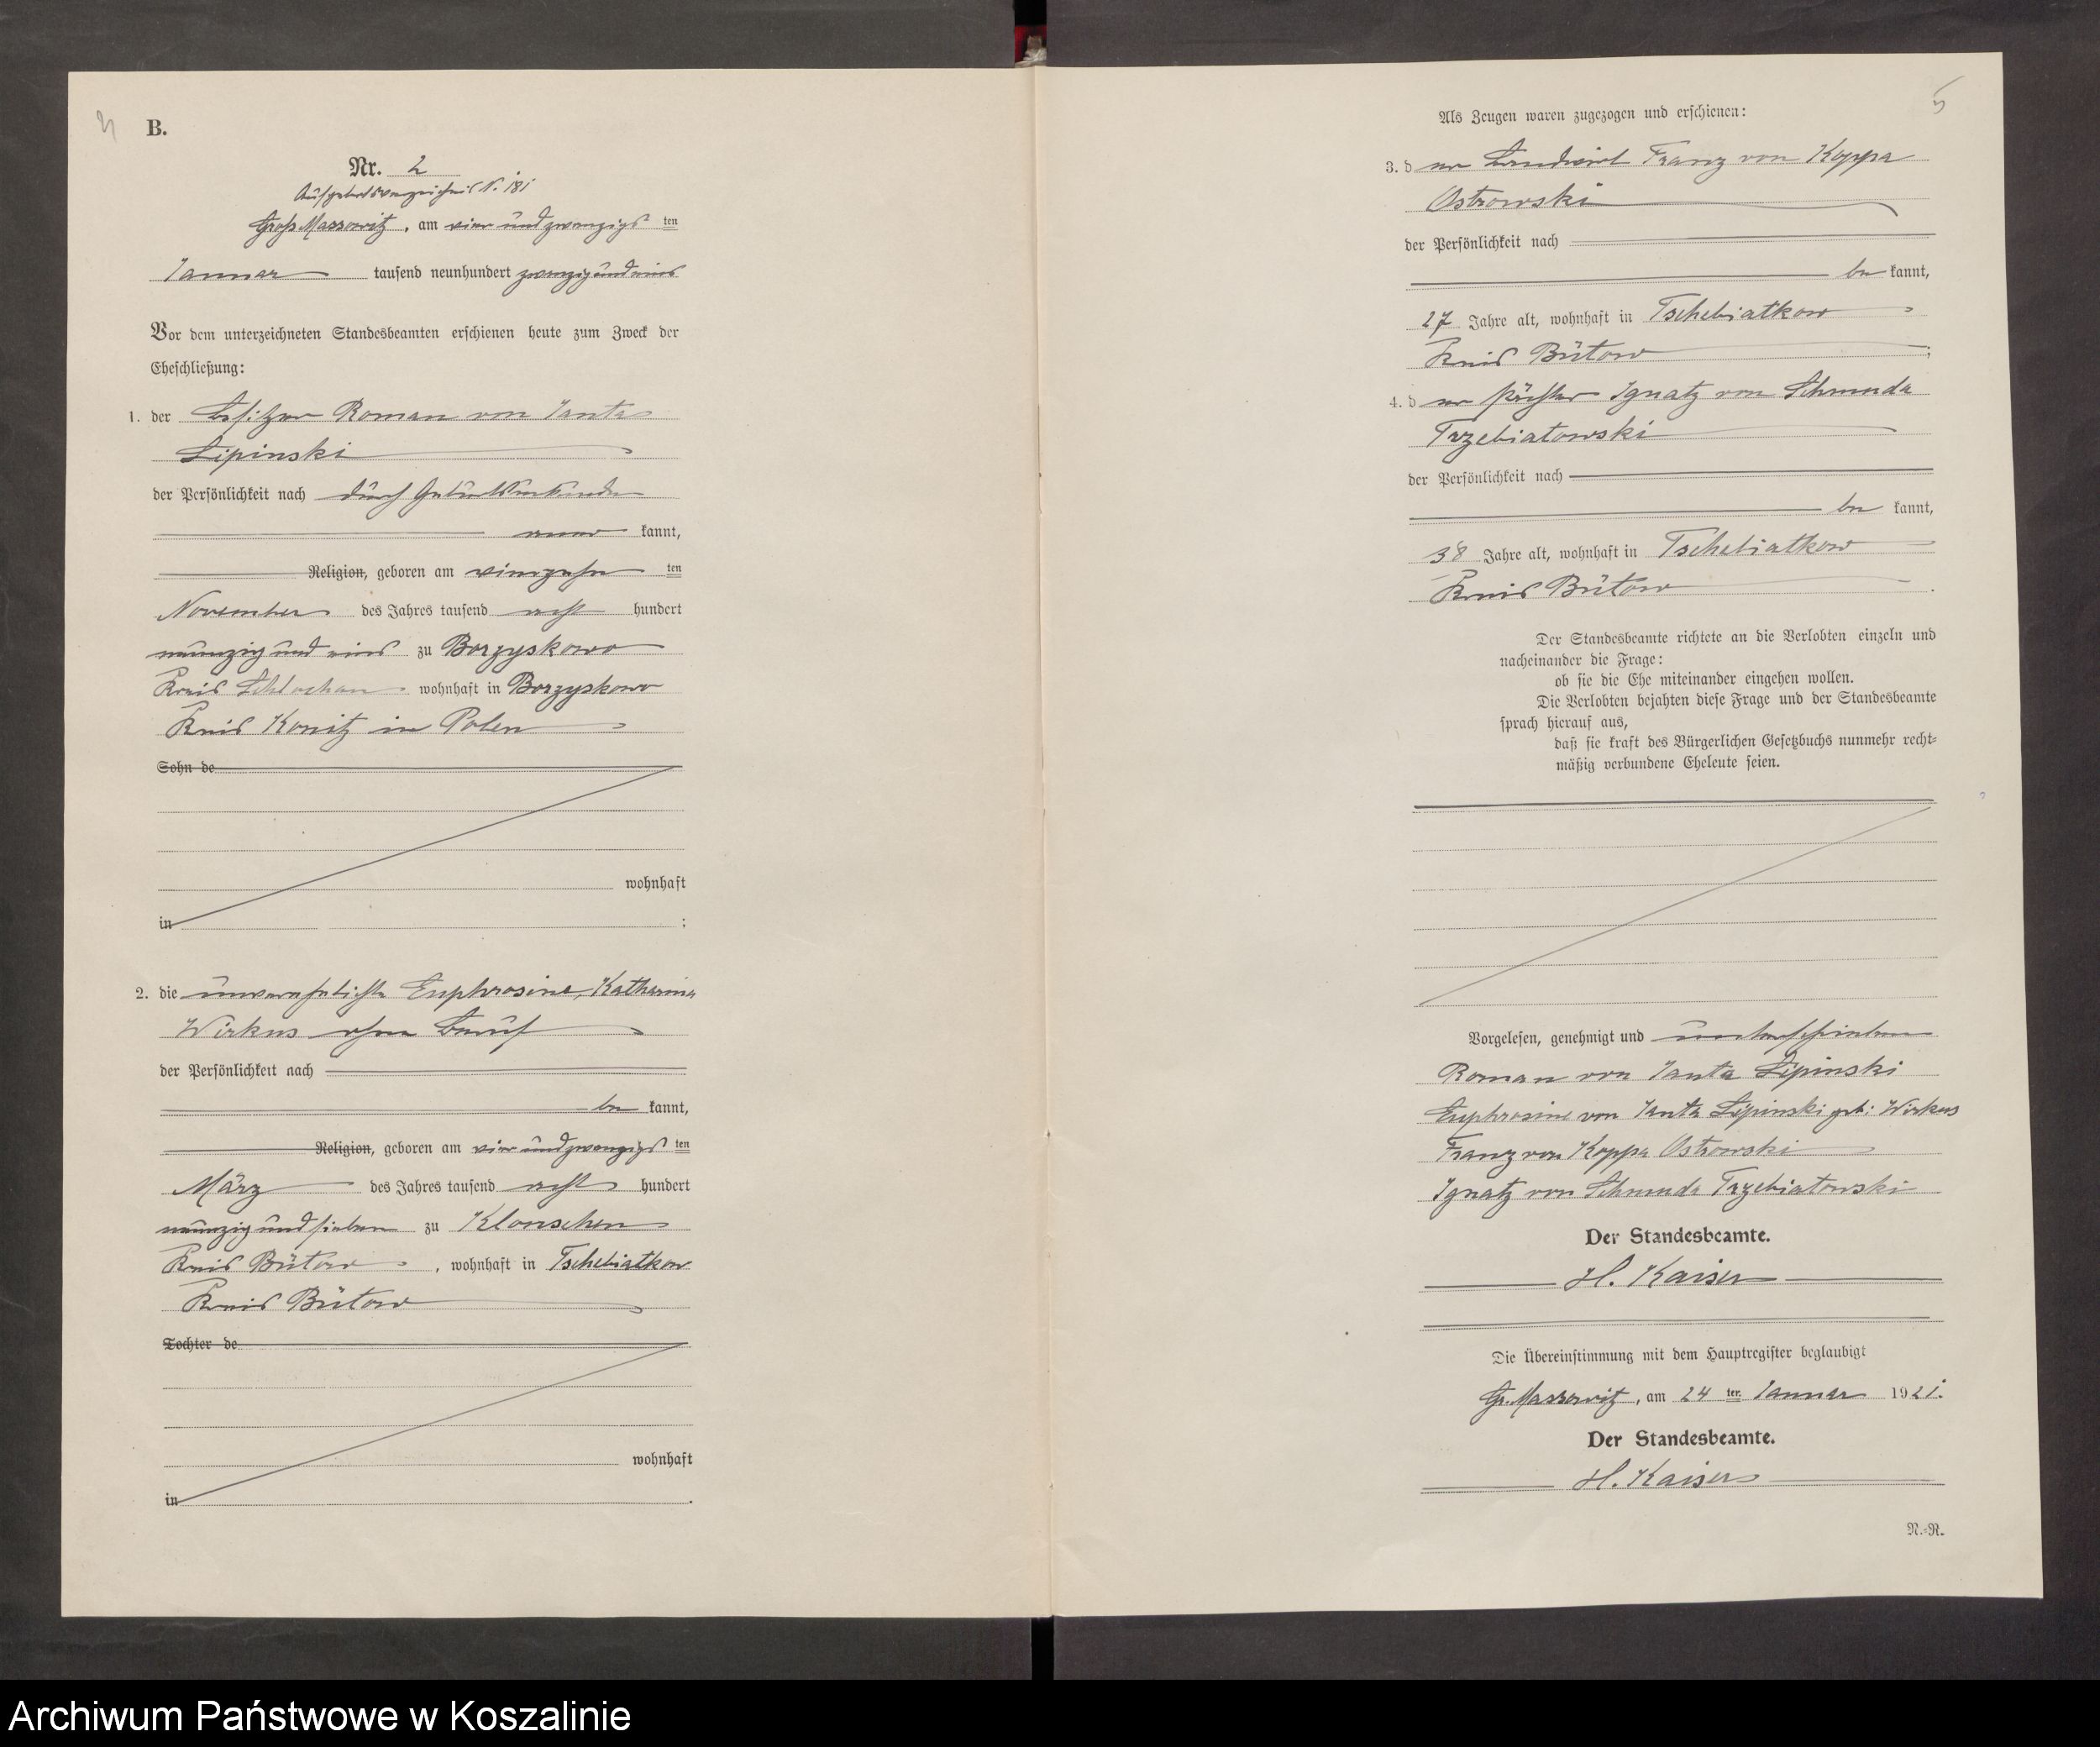 B.
Nr. 2
Aufgebotsverzeichnis N. 181
Groß Massowitz, am vier und zwanzigsten
Januar tausend neunhundert zwanzig und eins
Vor dem unterzeichneten Standesbeamten erschienen heute zum Zweck der
Eheschließung:
1. der Besitzer Roman von Janta
Lipinski
der Persönlichkeit nach durch Geburtsurkunde
aner kannt,
Religion, geboren am vierzehn ten
November des Jahres tausend acht hundert
neunzig und eins zu Borzyskowo
Kreis Schlochau wohnhaft in Borzyskowo
Kreis Konitz in Polen
Sohn de
wohnhaft
in ;
2. die unverehelichte Euphrosine, Katharina
Wirkus ohne Beruf
der Persönlichkeit nach
be kannt,
Religion, geboren am vier und zwanzigsten
März des Jahres tausend acht hundert
neunzig und sieben zu Klonschen
Kreis Bütow, wohnhaft in Tschebiatkow
Kreis Bütow
Tochter de
wohnhaft
in .
5
Als Zeugen waren zugezogen und erschienen:
3. der Landwirt Franz von Koppa
Ostrowski
der Persönlichkeit nach
be kannt,
27 Jahre alt, wohnhaft in Tschebiatkow
Kreis Bütow ;
4. der Pächter Ignatz von Schmuda
Trzebiatowski
der Persönlichkeit nach
be kannt,
38 Jahre alt, wohnhaft in Tschebiatkow
Kreis Bütow .
Der Standesbeamte richtete an die Verlobten einzeln und
nacheinander die Frage:
ob sie die Ehe miteinander eingehen wollen.
Die Verlobten bejahten diese Frage und der Standesbeamte
sprach hierauf aus,
daß sie kraft des Bürgerlichen Gesetzbuchs nunmehr recht-
mäßig verbundene Eheleute seien.
Vorgelesen, genehmigt und unterschrieben
Roman von Janta Lipinski
Euphrosine von Janta Lipinski geb: Wirkus
Franz von Koppa Ostrowski
Ignatz von Schmuda Trzebiatowski
Der Standesbeamte.
H. Kaiser
Die Übereinstimmung mit dem Hauptregister beglaubigt
Gr. Massowitz, am 24 ten Januar 1921.
Der Standesbeamte.
H. Kaiser
N.-R.
Archiwum Państwowe w Koszalinie